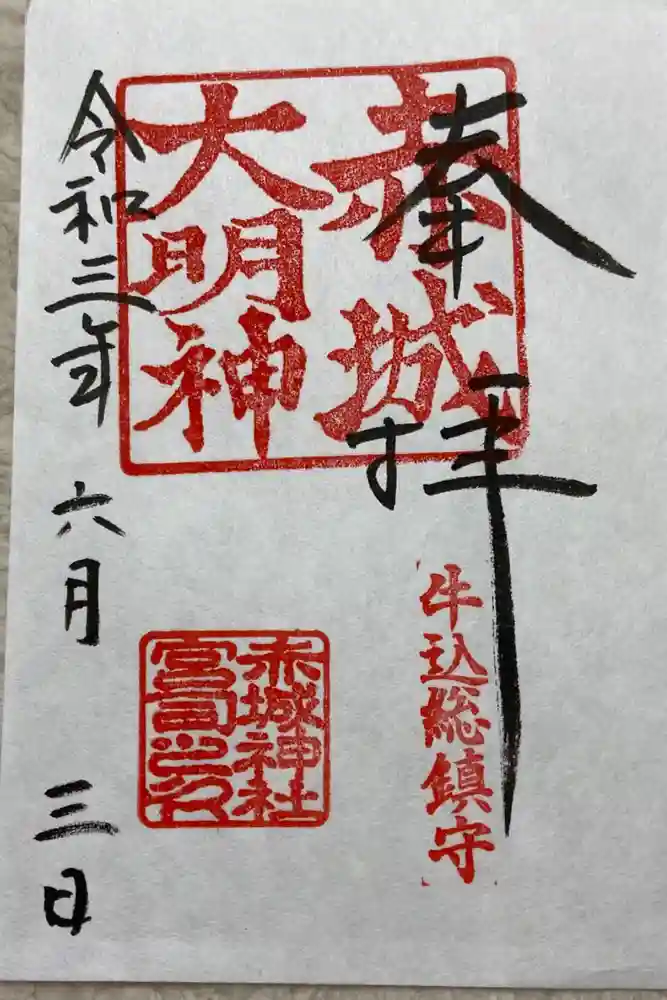 奉拝
赤城
大明神
牛込総鎮守
赤城神社
宮司之印
令和三年六月三日